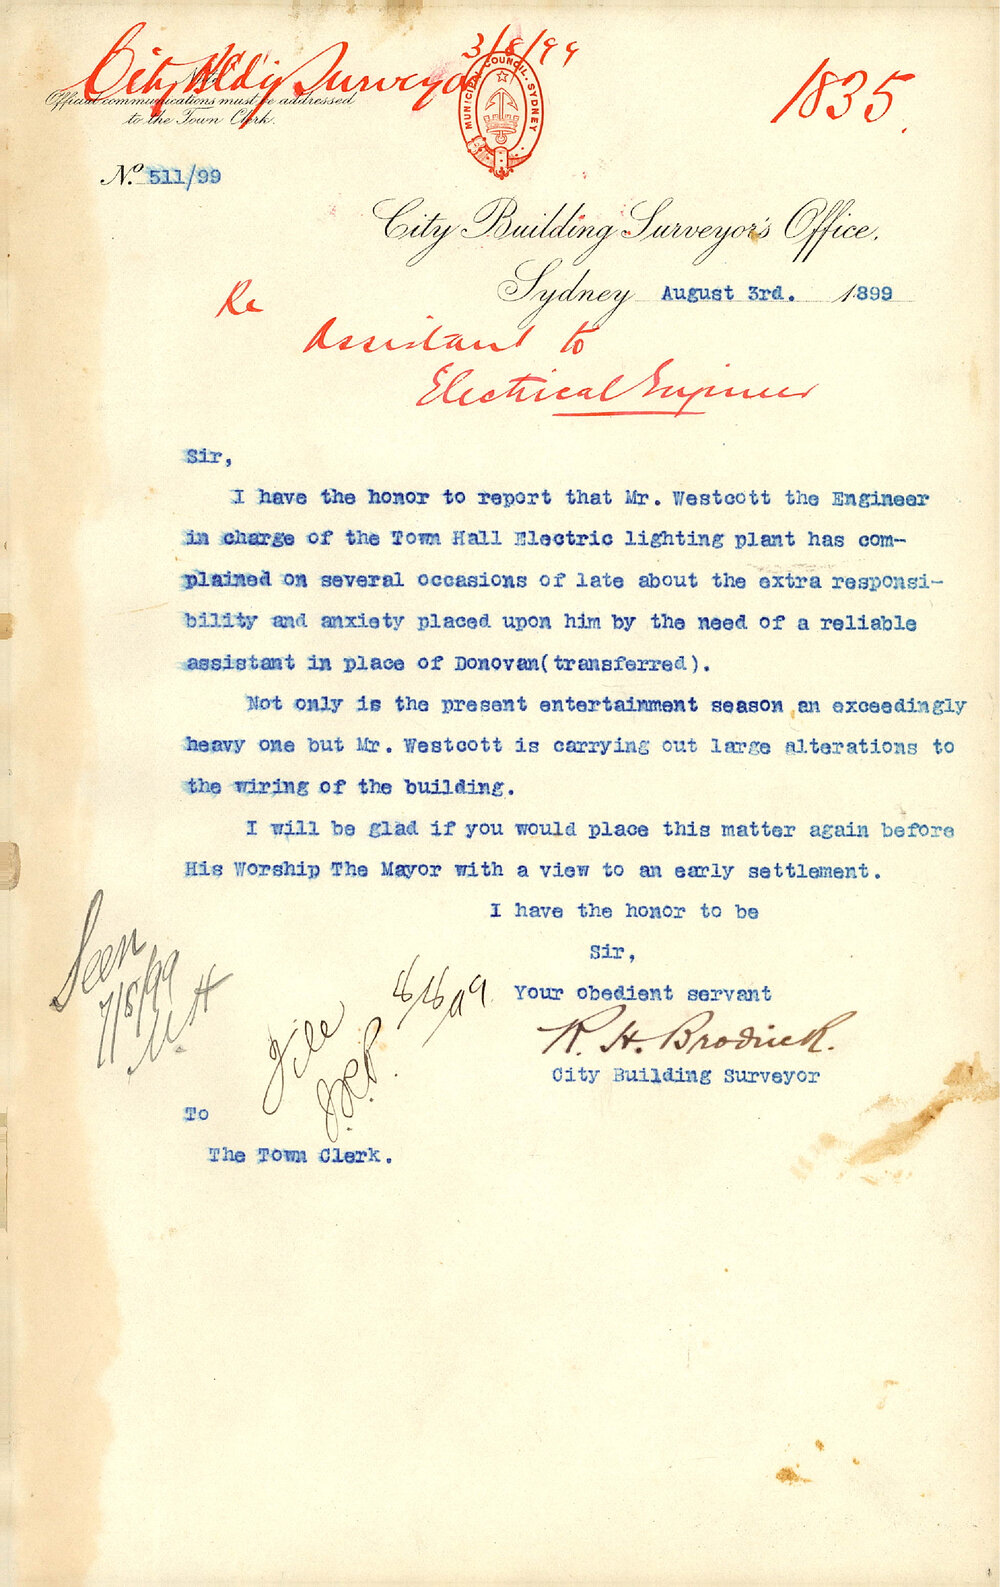 City Bldg Surveyor
3/8/99
1835.
Note
Official communications must be addressed
to the Town Clerk.
MUNICIPAL COUNCIL. SYDNEY
No. 511/99
City Building Surveyor's Office.
Sydney August 3rd. 1899
Re
Assistant to
Electrical Engineer
Sir,
I have the honor to report that Mr. Westcott the Engineer
in charge of the Town Hall Electric lighting plant has com-
plained on several occasions of late about the extra responsi-
bility and anxiety placed upon him by the need of a reliable
assistant in place of Donovan(transferred).
Not only is the present entertainment season an exceedingly
heavy one but Mr. Westcott is carrying out large alterations to
the wiring of the building.
I will be glad if you would place this matter again before
His Worship The Mayor with a view to an early settlement.
I have the honor to be
Sir,
Your obedient servant
R. H. Brodrick.
City Building Surveyor
Seen
7/8/99
File
8/8/99
To
The Town Clerk.